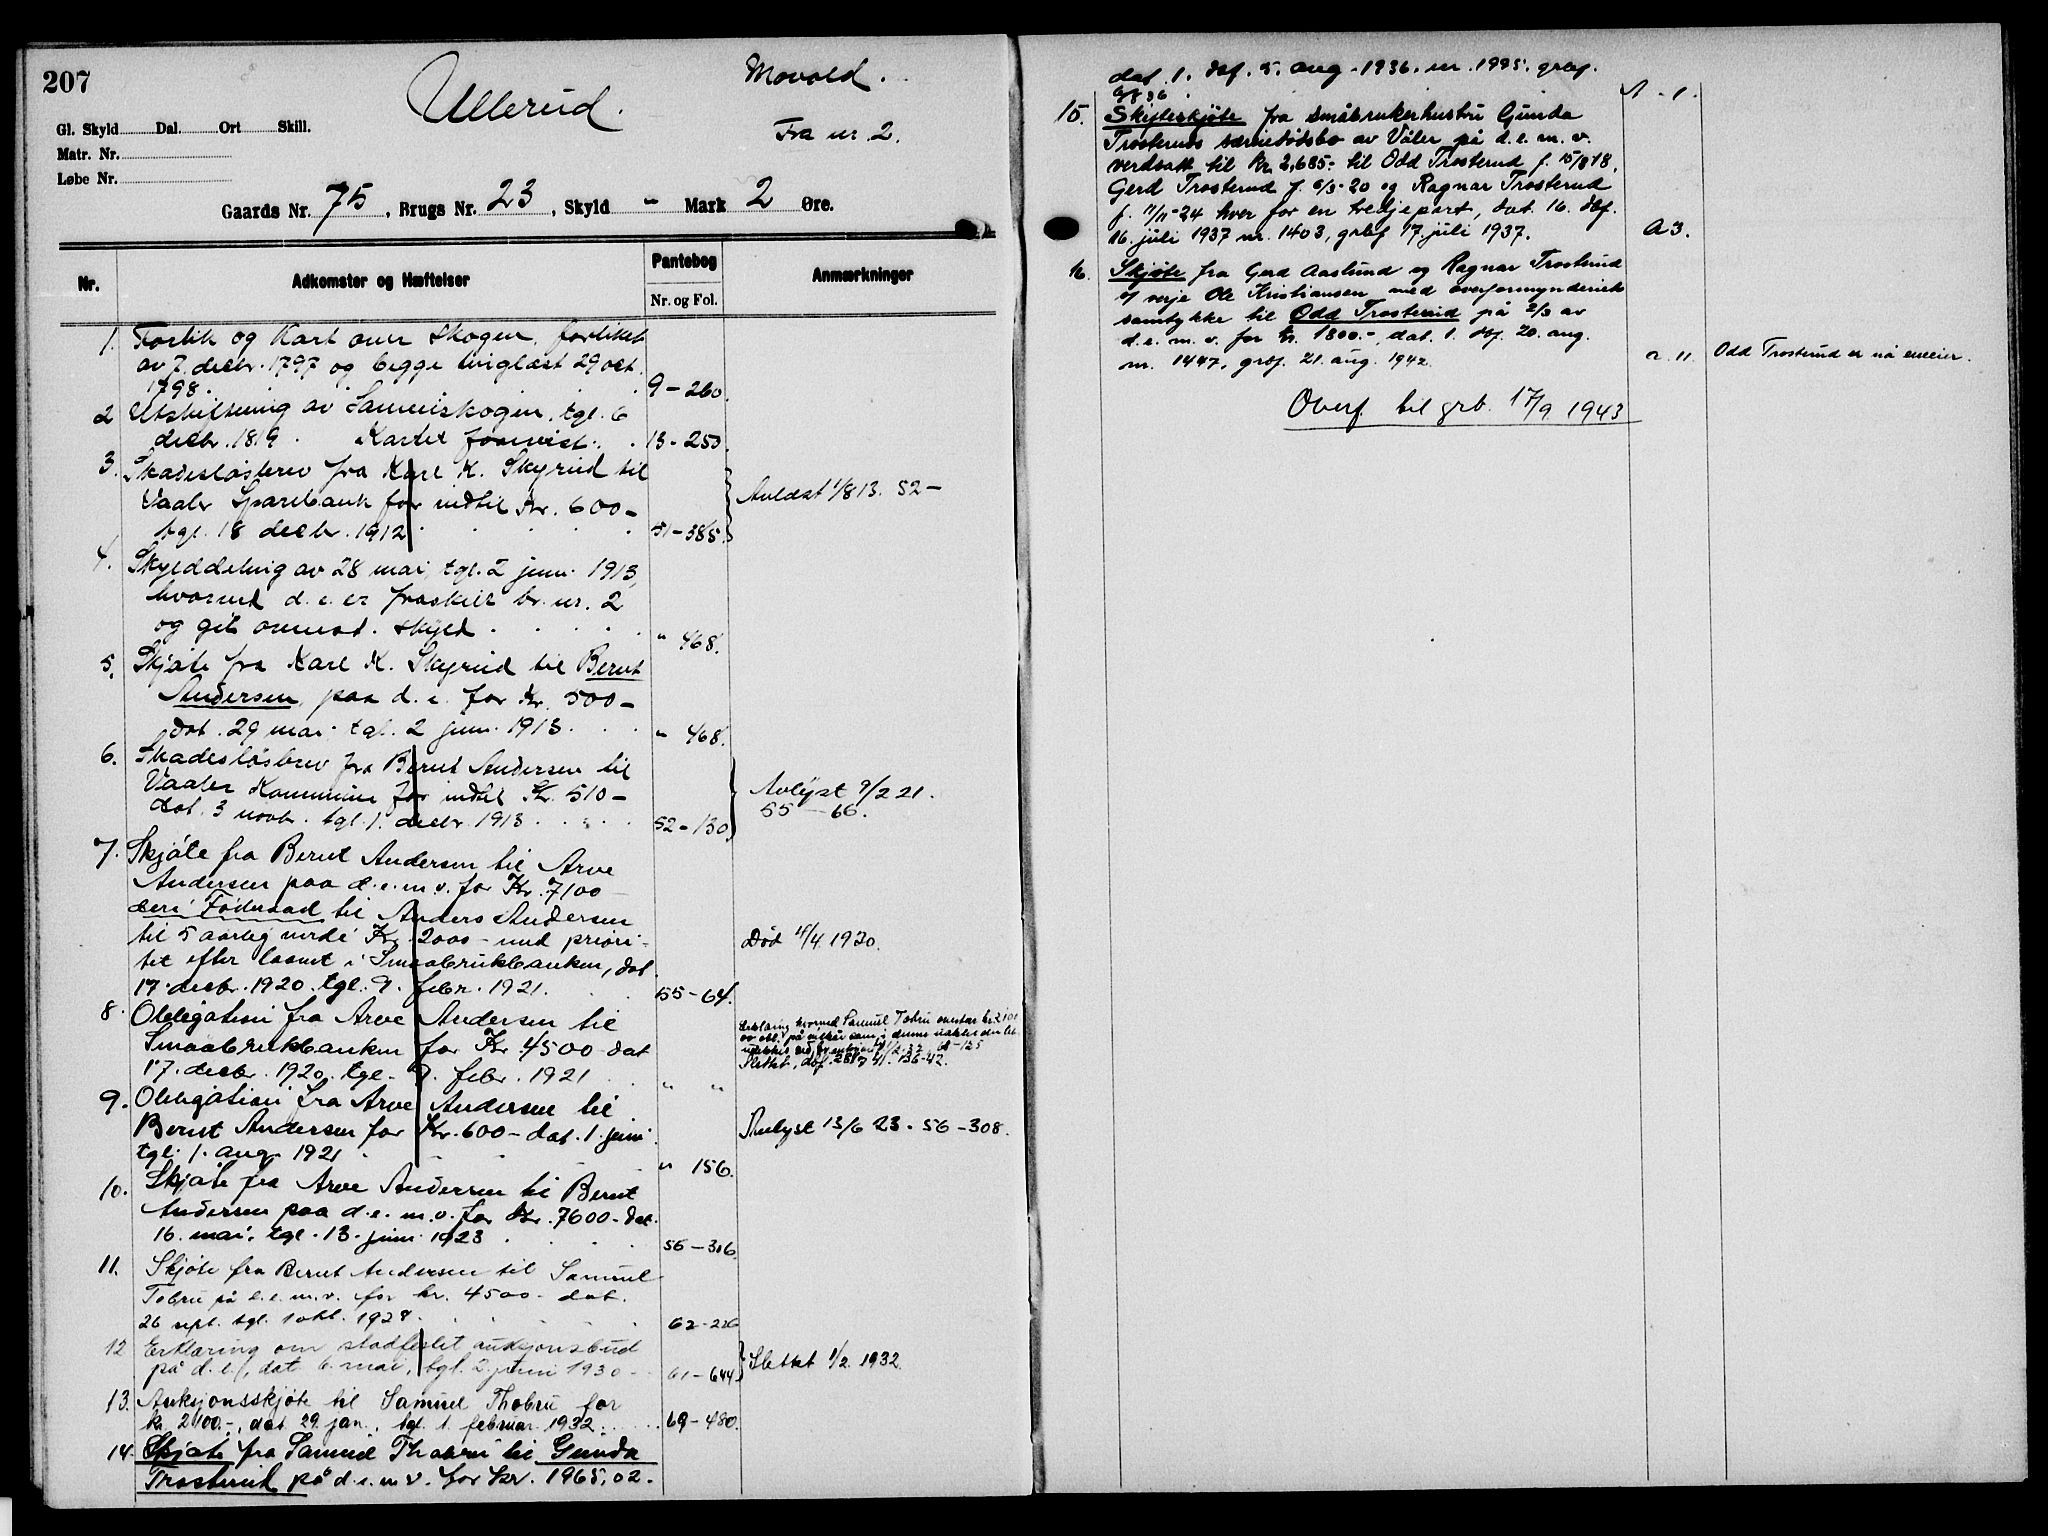 207
Ullerud.
Movold.
Fra nr. 2.
Gl. Skyld Dal. Ort Skill.
Matr. Nr.
Løbe Nr.
Gaards Nr. 75, Brugs Nr. 23, Skyld " Mark 2 Øre.
Nr. Adkomster og Hæftelser Pantebog Nr. og Fol. Anmærkninger
1. Forlik og Kart over skogen, forliket
av 7. decbr. 1797 og begge tinglæst 29 oct.
1798. 9-260.
2 Utskiftning av Sameiskogen, tgl. 6
decbr. 1819. Kartet foarvist. 13-253.
3. Skadesløsbrev fra Karl K. Skyrud til
Vaaler Sparebank for indtil Kr. 600-
tgl. 18 decbr. 1912 51-385. Avlæst 1/8 13. 52-
4. Skylddeling av 28 mai, tgl. 2 juni 1913,
hvorved d. e. er fraskilt br. nr. 2
og git ommeld. skyld. " 468.
5. Skjøte fra Karl K. Skyrud til Bernt
Andersen, paa d. e. for Kr. 500-
dat. 29 mai tgl. 2 juni 1913. " 468.
6. Skadesløsbrev fra Bernt Andersen til
Vaaler Kommune for indtil Kr. 510-
dat. 3 novbr. tgl. 1. decbr. 1913 52-130. Avlyst 9/2 21.
55-66.
7. Skjøte fra Bernt Andersen til Arve
Andersen paa d. e. m. v. for Kr. 7100
deri Föderaad til Anders Andersen
til 5 aarlig verdi Kr. 2000- med priori-
tet efter laanet i Smaabrukbanken, dat.
17. decbr. 1920. tgl. 9. febr. 1921. 55-64.
Død 4/4 1930.
8. Obligation fra Arve Andersen til
Smaabrukbanken for Kr. 4500 dat
17. decbr. 1920, tgl. 9. febr. 1921 " "
Erklæring hvorved Samuel Tobru overtar
Slettet, dbf.
9. Obligation fra Arve Andersen til
Bernt Andersen for Kr. 600- dat. 1. juni
tgl. 1. aug 1921 " 156.
Avlyst 13/6 23. 56-308.
10. Skjøte fra Arve Andersen til Bernt
Andersen paa d. e. m. v. for Kr. 7600- dat.
16. mai, tgl. 13. juni 1923 56-306.
11. Skjøte fra Bernt Andersen til Samuel
Tobru på d. e. m. v. for kr. 4500- dat.
26 sept. tgl. 1 okt. 1928. 62-226
12 Erklæring om stadfestet auksjonsbud
på d. e., dat 6. mai, tgl. 2. juni 1930 61-644 Slettet 1/2. 1932.
13. Auksjonsskjøte til Samuel Thobru for
kr. 2100.-, dat 29. jan., tgl. 1. februar 1932. 69-480.
14. Skjøte fra Samuel Thobru til Gunda
Trosterud på d. e. m. v. for kr. 1965,02.
dat. 1. dbf. 5. aug. 1936. nr. 1995. grbf.
6/8 36. A-1.
15. Skifteskjøte fra småbrukerhustru Gunda
Trosteruds særeiedødsbo av Våler på d. e. m. v.
verdsatt til kr. 2,685- til Odd Trosterud f. 15/8 18,
Gerd Trosterud f. 6/5-20 og Ragnar Trosterud
f. 11/11-24 hver for en tredjepart, dat. 16. dbf.
16. juli 1937 nr. 1403, grbf 17. juli 1937. A 3.
16. Skjøte fra Gerd Aaslund og Ragnar Trosterud
v/ verje Ole Kristiansen med overformynderiets
samtykke til Odd Trosterud på 2/3 av
d. e. m. v. for kr. 1800.-, dat. 1. dbf. 20. aug.
nr. 1447, grbf. 21. aug. 1942. a. 11. Odd Trosterud er nå eneeier.
Overf. til grb. 17/9 1943